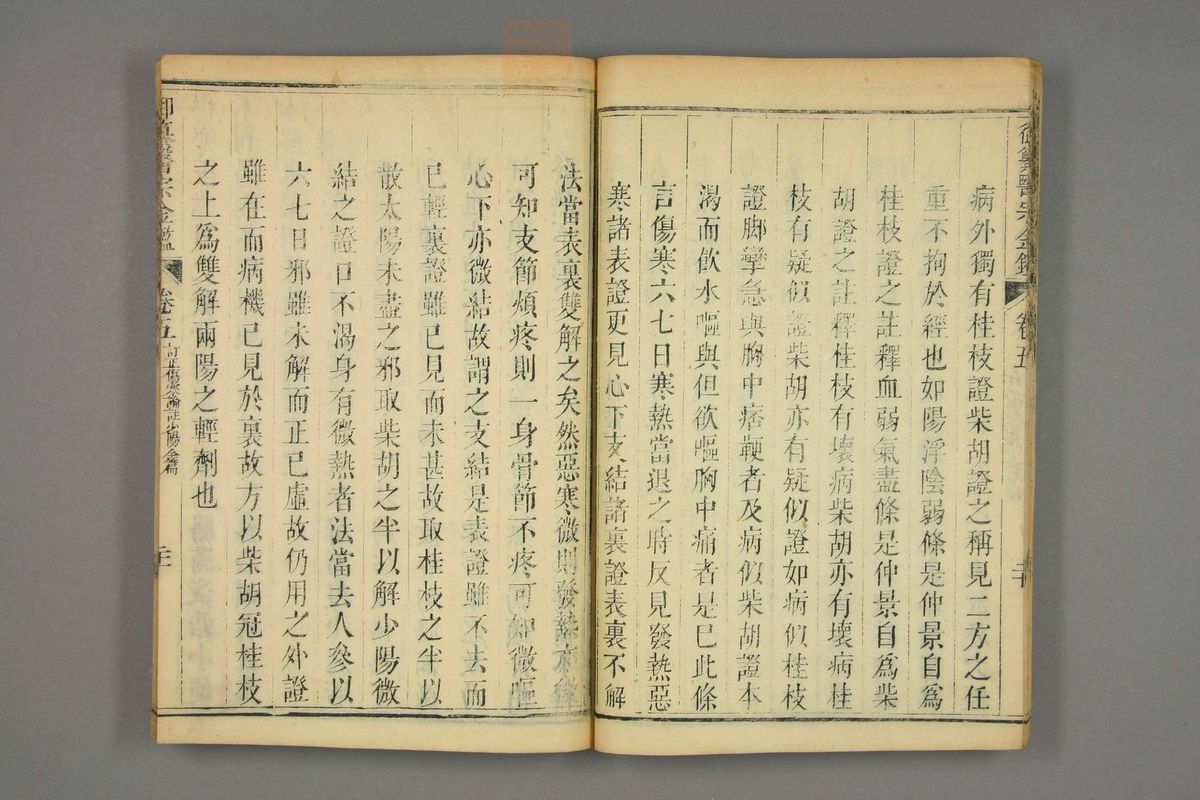 御纂醫宗金鑑 卷五
病外獨有桂枝證柴胡證之稱見二方之任
重不拘於經也如陽浮陰弱條是仲景自爲
桂枝證之註釋血弱氣盡條是仲景自爲柴
胡證之註釋桂枝有壞病柴胡亦有壞病桂
枝有疑似證柴胡亦有疑似證如病似桂枝
證脚攣急與胸中痞鞕者及病似柴胡證本
渴而飲水嘔與但欲嘔胸中痛者是已此條
言傷寒六七日寒熱當退之時反見發熱惡
寒諸表證更見心下支結諸裏證表裏不解
法當表裏雙解之矣然惡寒微則發熱亦微
可知支節煩疼則一身骨節不疼可知微嘔
心下亦微結故謂之支結是表證雖不去而
已輕裏證雖已見而未甚故取桂枝之半以
散太陽未盡之邪取柴胡之半以解少陽微
結之證口不渴身有微熱者法當去人參以
六七日邪雖未解而正已虛故仍用之外證
雖在而病機已見於裏故方以柴胡冠桂枝
之上爲雙解兩陽之輕劑也
御纂醫宗金鑑 卷五 訂正傷寒論註少陽全篇